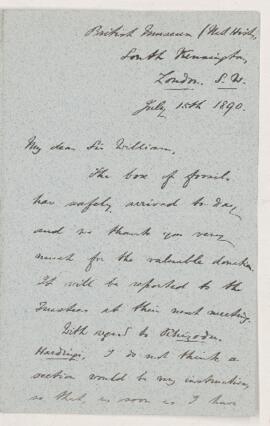 British Museum (Nat. Hist.)
South Kensington,
London. S.W.
July 15th 1890.
My dear Sir William,
The box of fossils
has safely arrived to-day,
and we thank you very
much for the valuable donation.
It will be reported to the
Trustees at their next meeting.
With regard to Rhizodus
Hardingi, I do not think a
section would be very instructive,
so that, as soon as I have